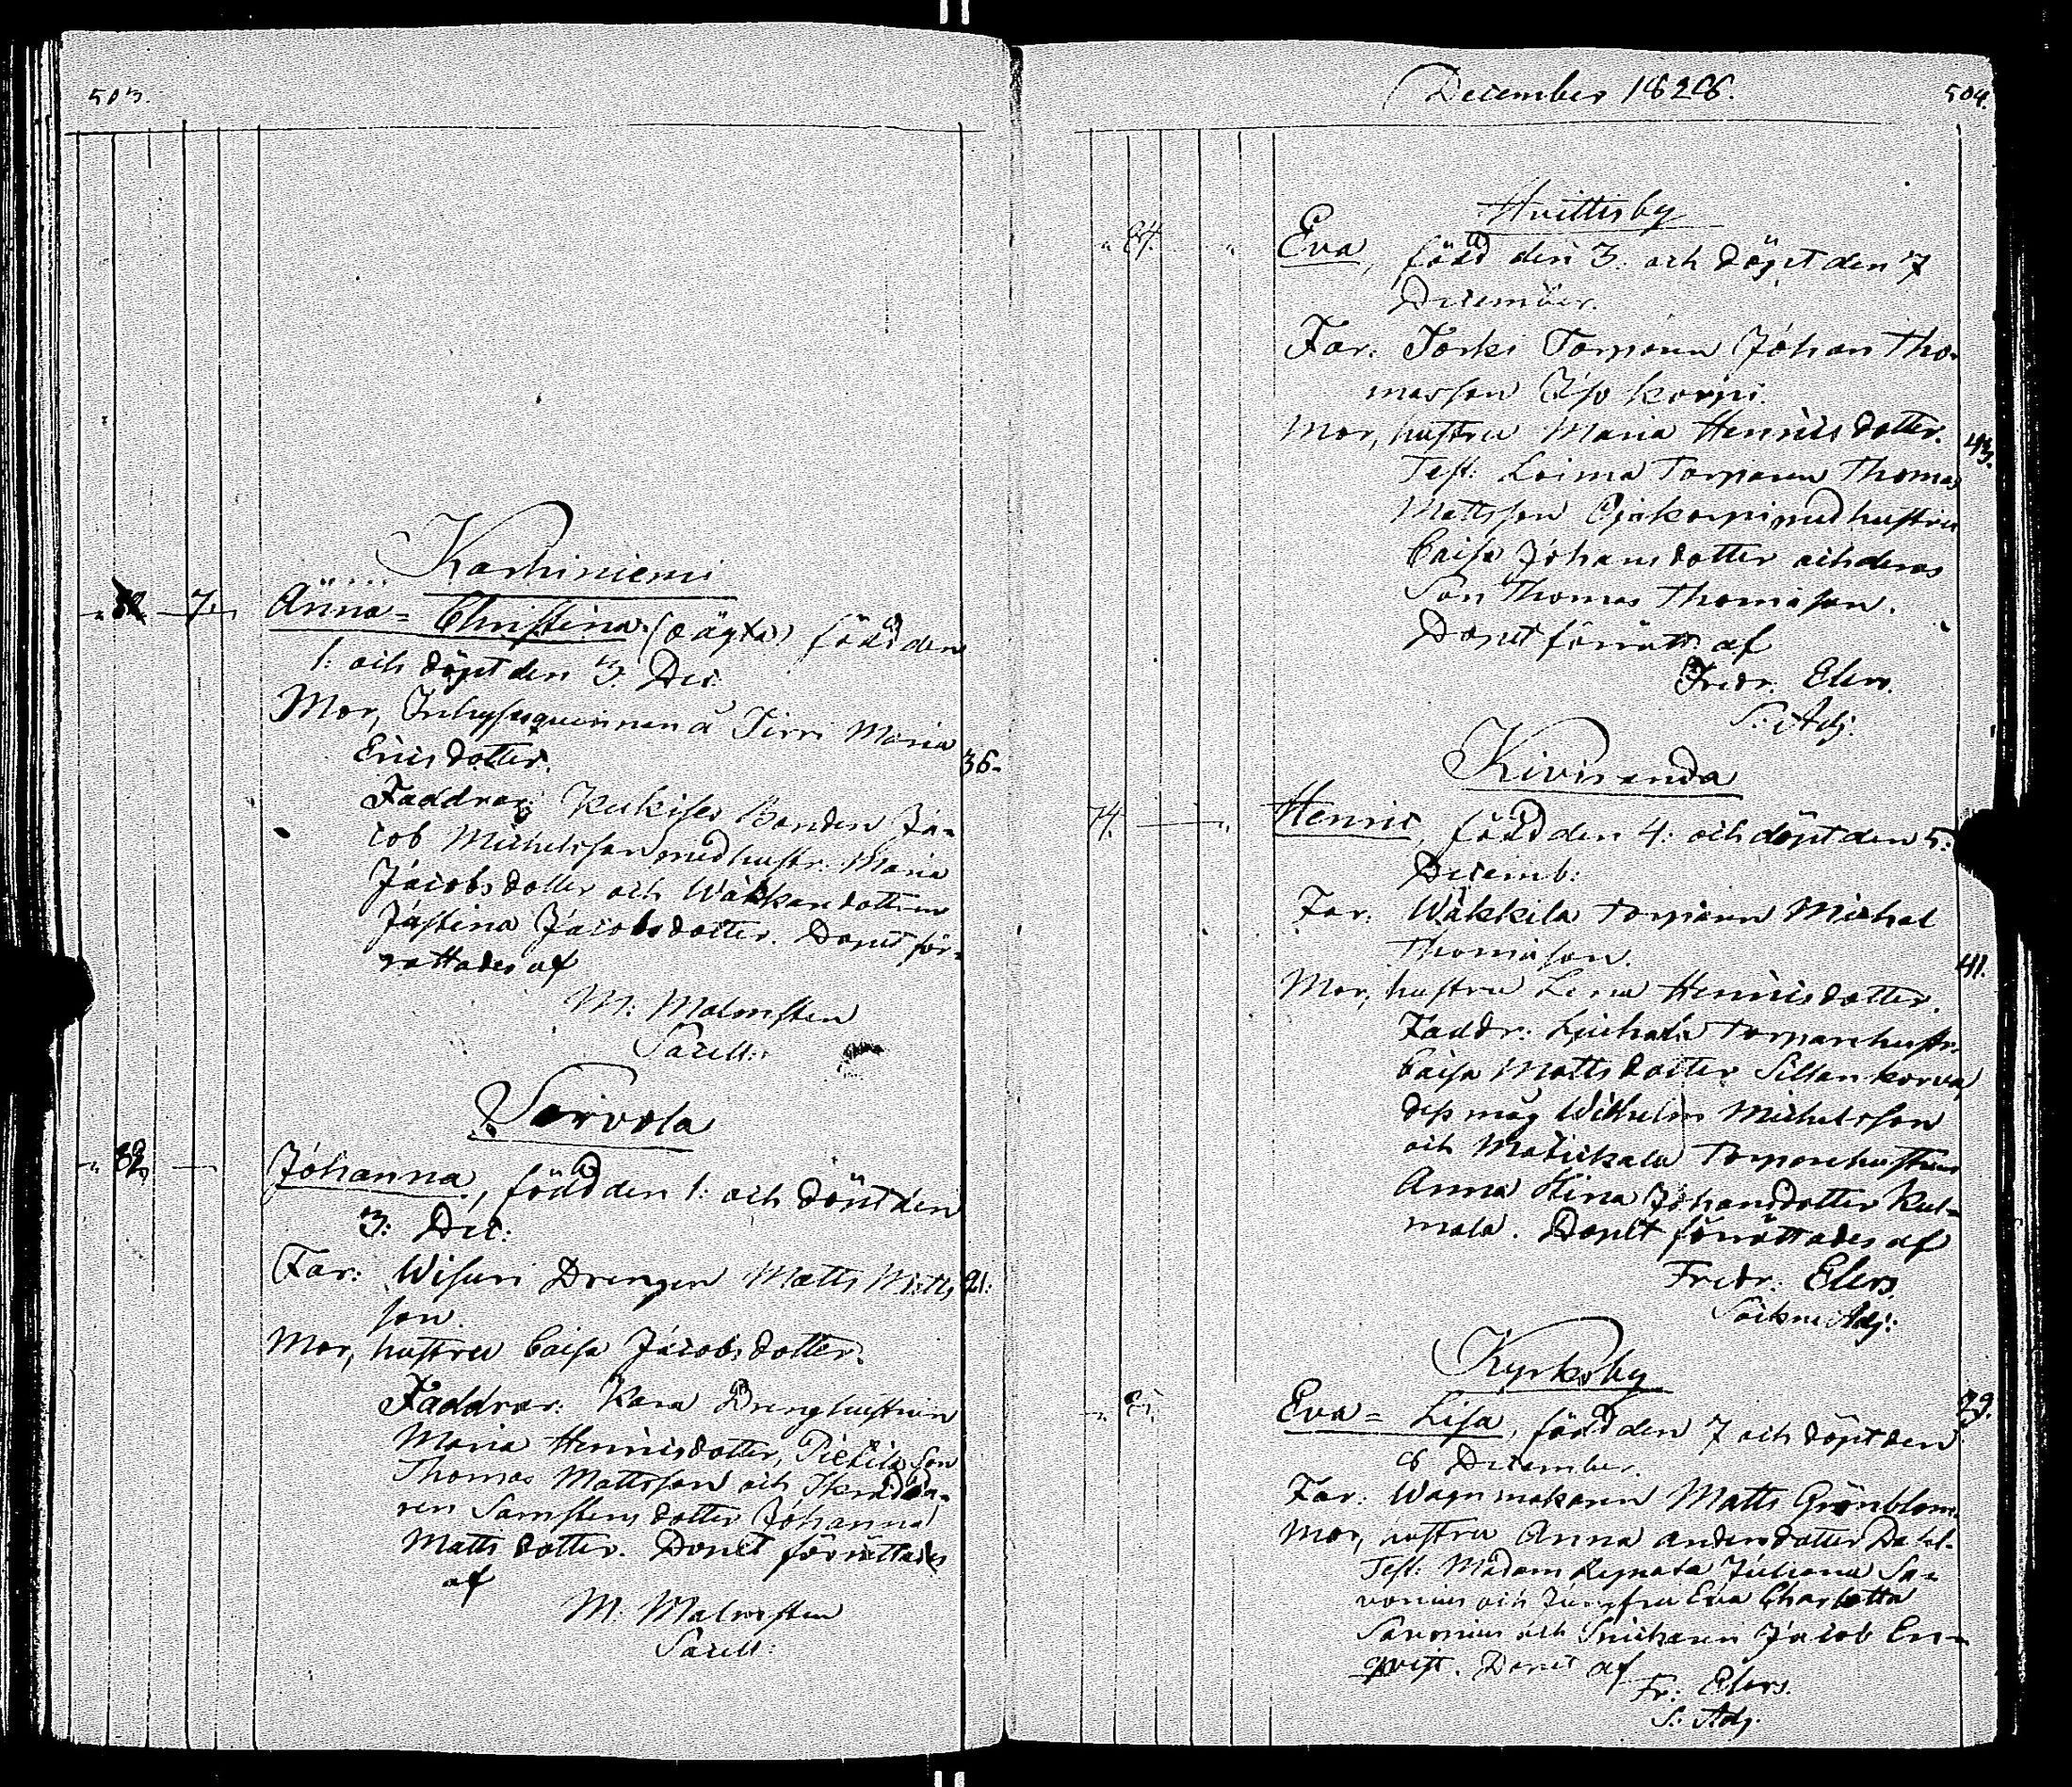 503.
Karhiniemi
" 7. Änna= Christina (oägta) född den
1: och döpt den 3. Dec:
Mor, Inhysesquinnan å Pirri Maria
Ericsdotter. 36.
Faddrar: Kukises Bonden Ja-
cob Michelsson med hustr: Maria
Jacobsdotter och Wäkkäre dottren
Justina Jacobsdotter. Dopet för-
rättades af
M: Malmsten
Sacell:
Sorvola
Johanna, född den 1: och döpt den
3: Dec:
Far: Wisuri Drengen Matts Matts 21:
son.
Mor, hustru Caisa Jacobsdotter.
Faddrar: Kara Dreng hustrun
Maria Henricsdotter, Pietilä son
Thomas Mattsson och Skräda-
ren Samstens dotter Johanna
Matts dotter. Dopet förrättades
af
M: Malmsten
Sacell:
December 1828. 504.
Hvittisby
84. Eva, född den 3: och döpt den 7
December.
Far: Torparen Johan Tho-
masson Iso korpi.
Mor, hustru Maria Henricsdotter. 43.
Test: Loima Torparen Thomas
Mattsson Ojakorpi med hustru
Caisa Johansdotter och deras
Son Thomas Thomasson.
Dopet förrätt: af
Fredr. Elers.
S: Adj:
Kiviranda
74. Henric, född den 4: och döpt den 5:
Decemb:
Far: Wäkkilä Torparen Michel
Thomasson. 41.
Mor, hustru Lena Henricsdotter.
Faddr: Torpare hustr:
Caisa Mattsdotter Sillankorva
dess måg Wilhelm Michelsson
och Torpare hustrun
Anna Stina Johansdotter Kul-
mala. Dopet förrättades af
Fredr: Elers.
Sockne Adj:
Kyrkoby
Eva= Lisa, född den 7 och döpt den 29.
8 December.
Far: Wagnmakaren Matts Grönblom.
Mor, hustru Anna Andersdotter Dahl.
Test: Madam Renata Juliana Sa-
vonius och Jungfru Eva Charlotta
Savonius och Snickaren Jacob En-
qvist. Dopet af
Fr: Elers.
S: Adj.